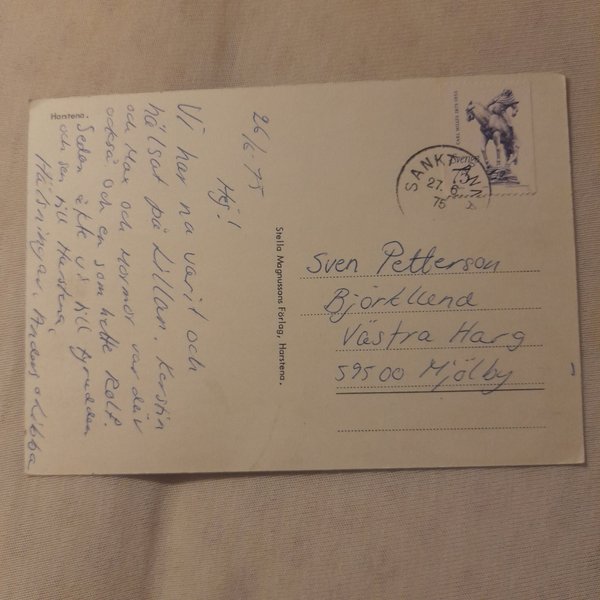 Harstena.
26/6-75
Hej!
Vi har nå varit och
hälsat på Lillan. Kerstin
och Max och Mormor var där
också Och en som hette Rolf.
Sedan åkte vi till Gryudden
och sen till Harstena
Hälsningar. Anders o Ebba
Stella Magnussons Förlag, Harstena.
CARL MILLES 1875-1955
Sverige
75
SANKT ANNA
27. 6.
75
Sven Petterson
Björklund
Västra Harg
59500 Mjölby